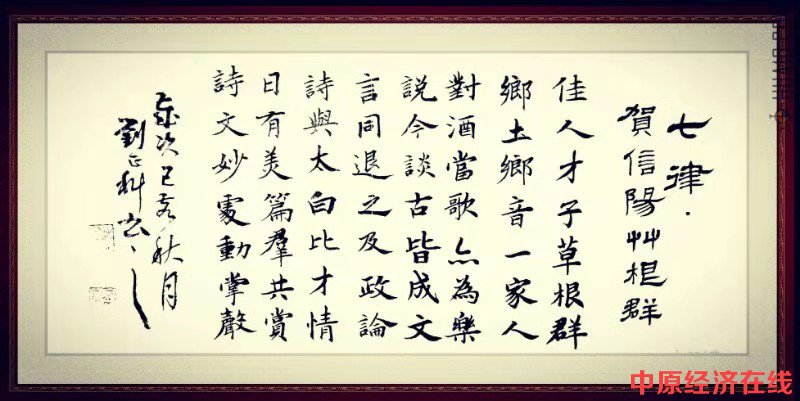 七律·
賀信陽艸根群
佳人才子草根群
鄉土鄉音一家人
對酒當歌亦為樂
說今談古皆成文
言同退之及政論
詩與太白比才情
日有美篇羣共賞
詩文妙處動掌聲
歲次己亥秋月
劉正科書
中原经济在线